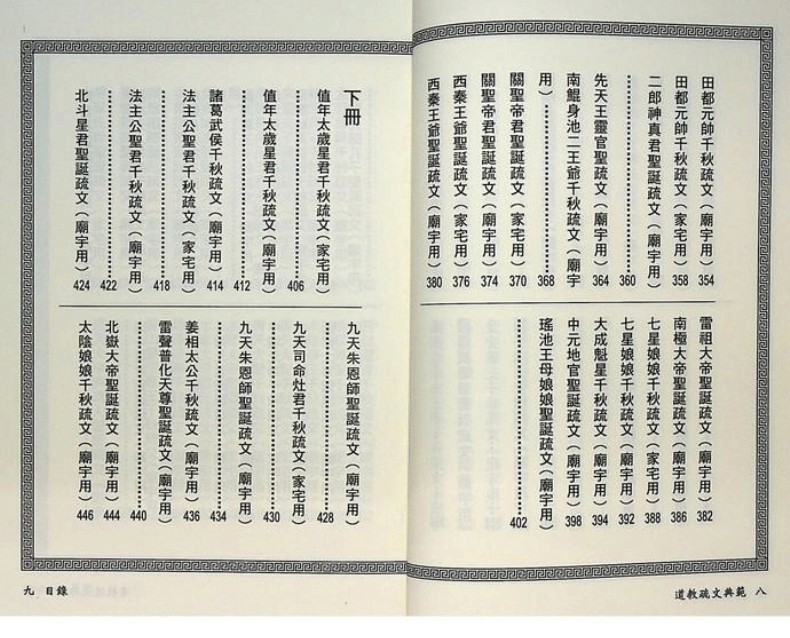 田都元帥千秋疏文（廟宇用）354
田都元帥千秋疏文（家宅用）358
二郎神真君聖誕疏文（廟宇用）
⋯⋯⋯⋯⋯⋯⋯⋯360
先天王靈官聖疏文（廟宇用）364
南鯤身池二王爺千秋疏文（廟宇
用）⋯⋯⋯⋯⋯⋯⋯⋯368
關聖帝君聖誕疏文（家宅用）370
關聖帝君聖誕疏文（廟宇用）374
西秦王爺聖誕疏文（家宅用）376
西秦王爺聖誕疏文（廟宇用）380
雷祖大帝聖誕疏文（廟宇用）382
南極大帝聖誕疏文（廟宇用）386
七星娘娘千秋疏文（家宅用）388
七星娘娘千秋疏文（廟宇用）392
大成魁星千秋疏文（廟宇用）394
中元地官聖誕疏文（廟宇用）398
瑤池王母娘娘聖誕疏文（廟宇用）
⋯⋯⋯⋯⋯⋯⋯⋯402
道教疏文典範 八
下冊
值年太歲星君千秋疏文（家宅用）
⋯⋯⋯⋯⋯⋯⋯⋯406
值年太歲星君千秋疏文（廟宇用）
⋯⋯⋯⋯⋯⋯⋯⋯412
諸葛武侯千秋疏文（廟宇用）414
法主公聖君千秋疏文（家宅用）
⋯⋯⋯⋯⋯⋯⋯⋯418
法主公聖君千秋疏文（廟宇用）
⋯⋯⋯⋯⋯⋯⋯⋯422
北斗星君聖誕疏文（廟宇用）424
九天朱恩師聖誕疏文（廟宇用）
⋯⋯⋯⋯⋯⋯⋯⋯428
九天司命灶君千秋疏文（家宅用）
⋯⋯⋯⋯⋯⋯⋯⋯430
九天朱恩師聖誕疏文（廟宇用）
⋯⋯⋯⋯⋯⋯⋯⋯434
姜相太公千秋疏文（廟宇用）436
雷聲普化天尊聖誕疏文（廟宇用）
⋯⋯⋯⋯⋯⋯⋯⋯440
北嶽大帝聖誕疏文（廟宇用）444
太陰娘娘千秋疏文（廟宇用）446
九 目錄